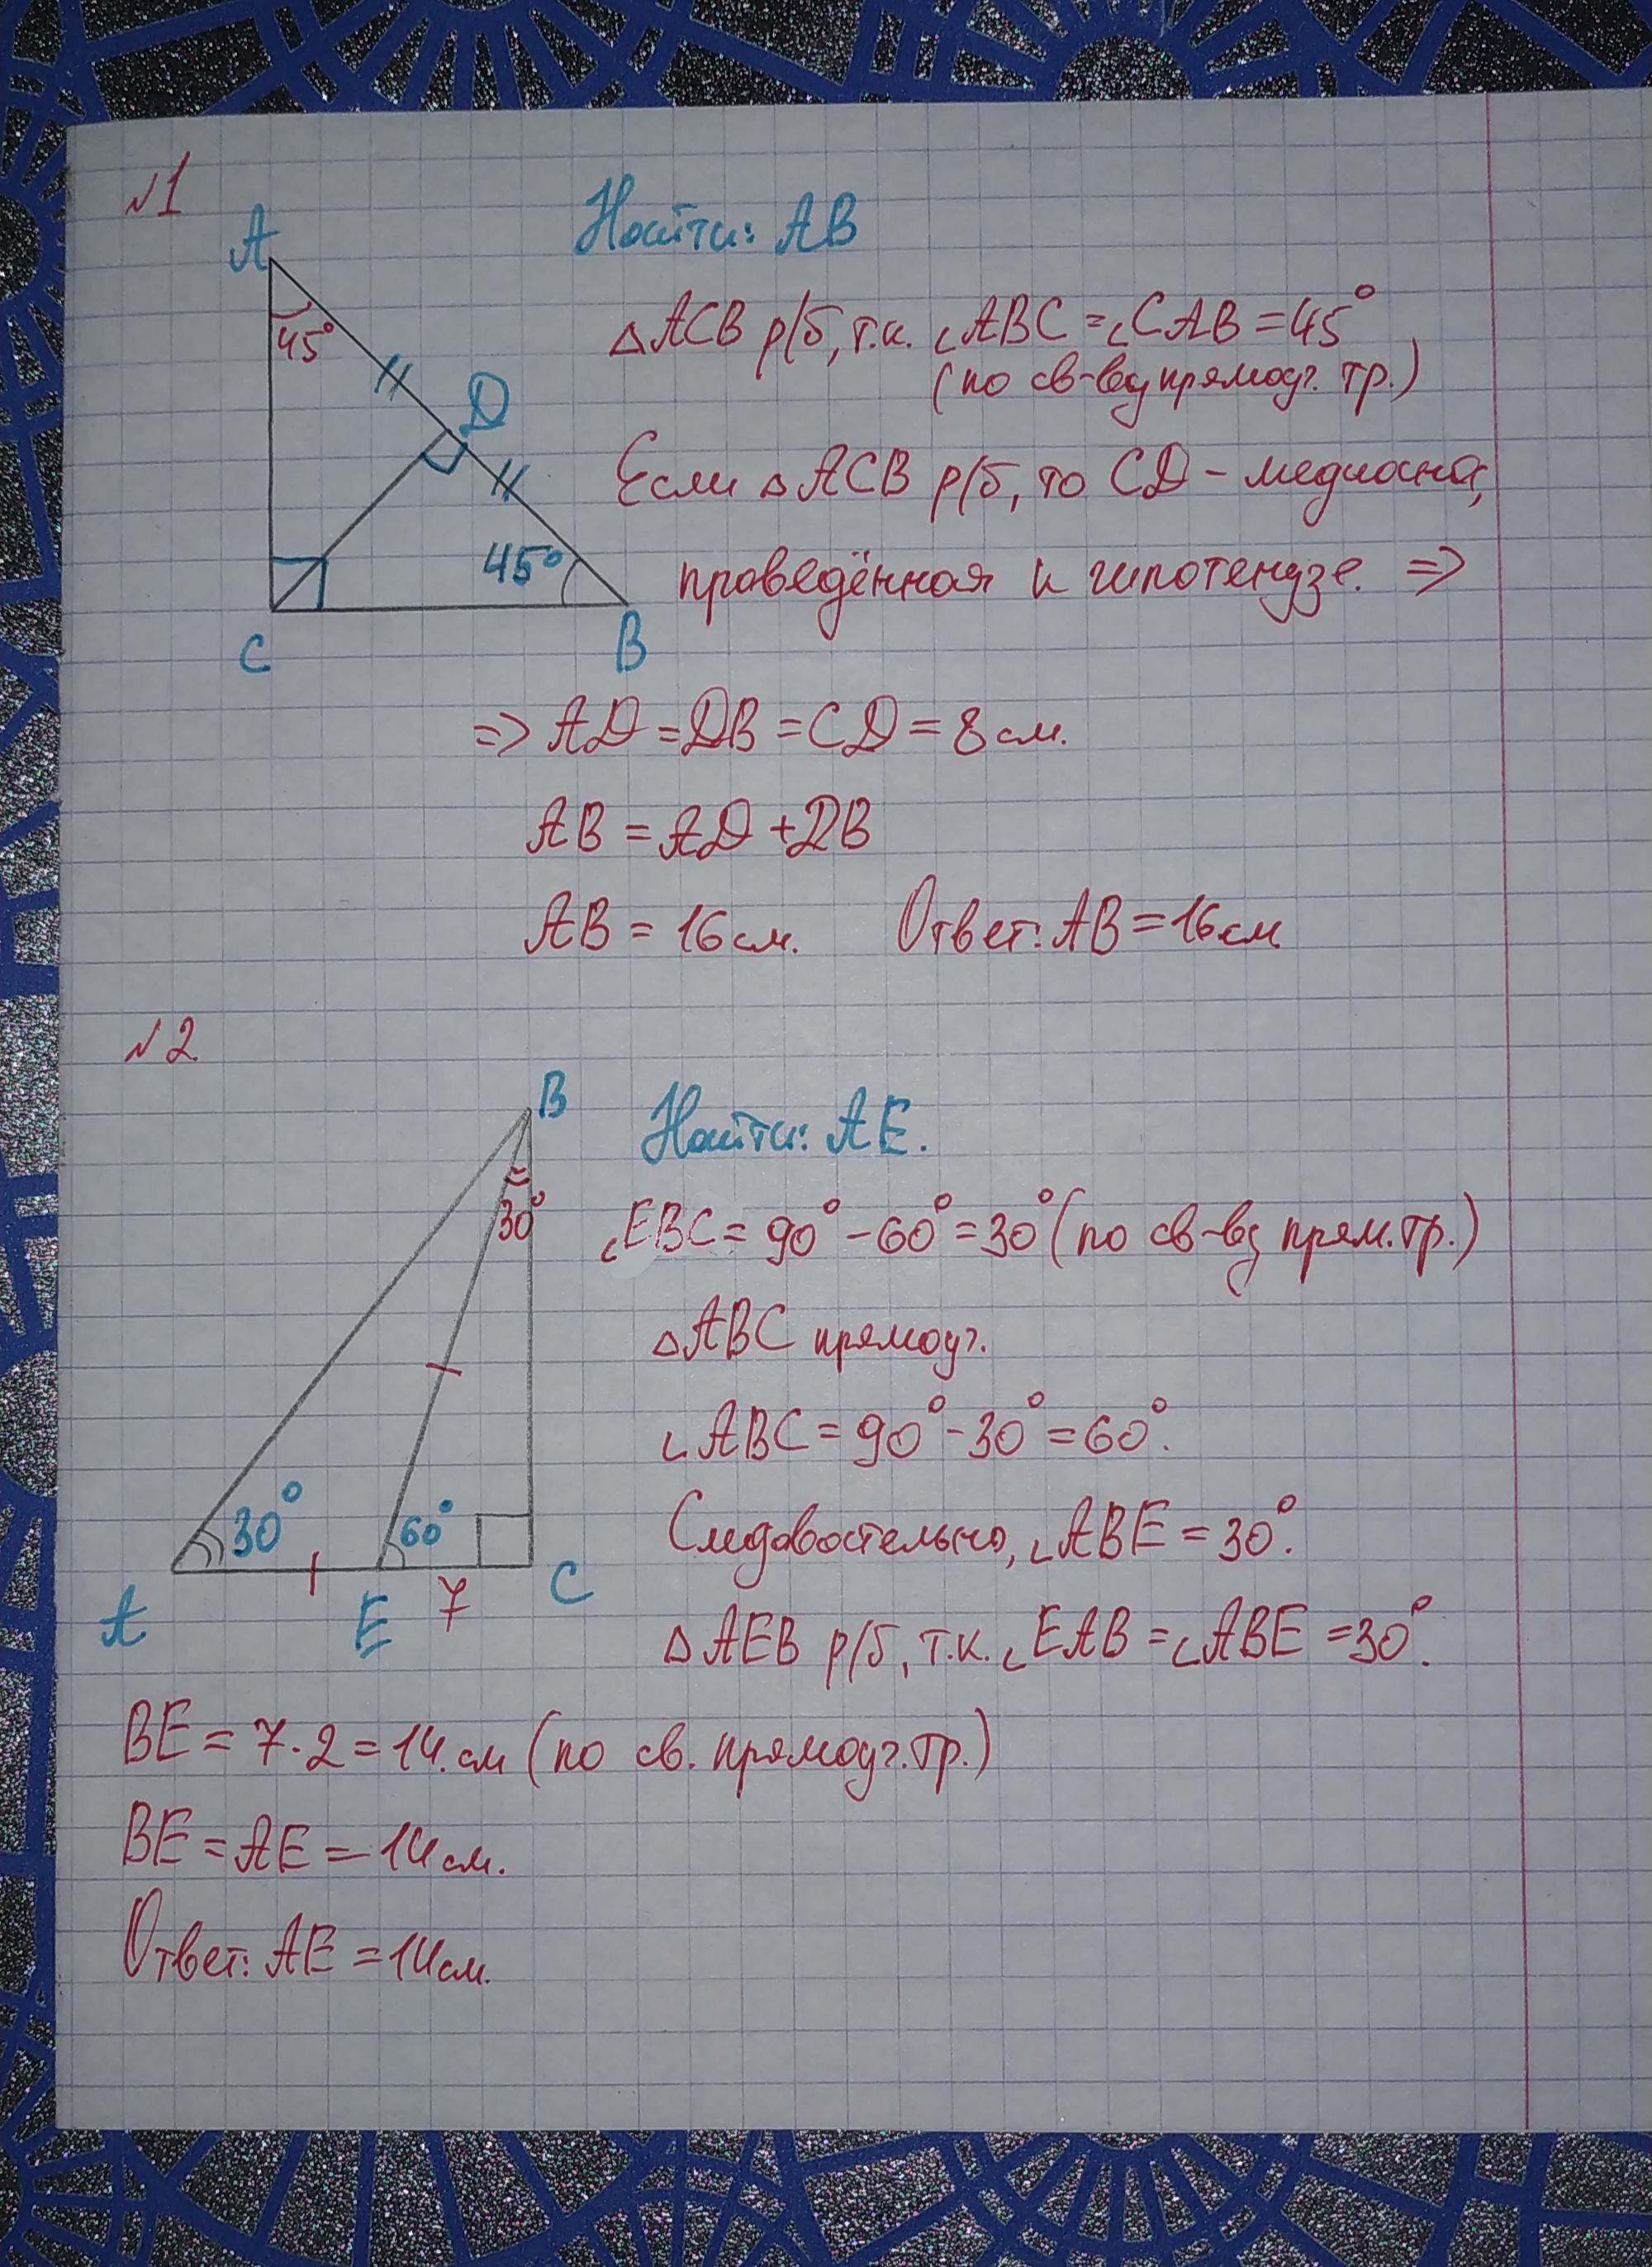 №1
Найти: AB
A
45°
D
45°
C
B
△ACB р/б, т.к. ∠ABC = ∠CAB = 45°
(по св-ву прямоуг. тр.)
Если △ACB р/б, то CD - медиана,
проведённая к гипотенузе. =>
=> AD = DB = CD = 8 см.
AB = AD + DB
AB = 16 см. Ответ: AB = 16 см
№2
B
30°
30°
60°
A
E
7
C
Найти: AE.
∠EBC = 90° - 60° = 30° (по св-ву прям. тр.)
△ABC прямоуг.
∠ABC = 90° - 30° = 60°.
Следовательно, ∠ABE = 30°.
△AEB р/б, т.к. ∠EAB = ∠ABE = 30°.
BE = 7 · 2 = 14 см (по св. прямоуг. тр.)
BE = AE = 14 см.
Ответ: AE = 14 см.